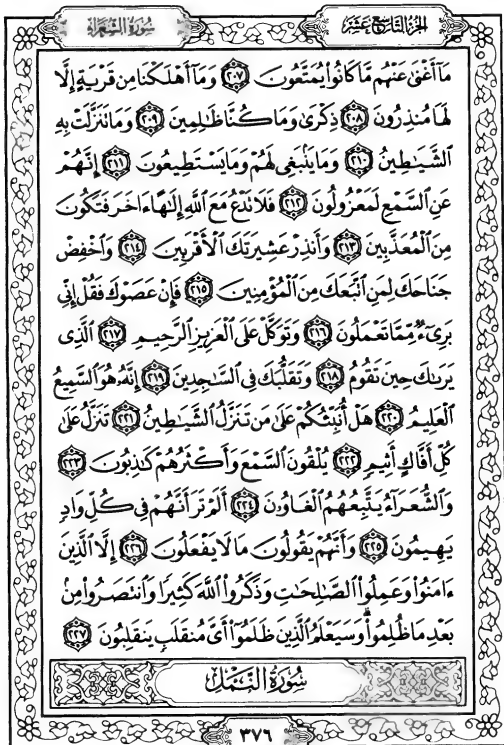 الجزء التاسع عشر سورة الشعراء
مَآ أَغْنَىٰ عَنْهُم مَّا كَانُوا۟ يُمَتَّعُونَ ٢٠٧ وَمَآ أَهْلَكْنَا مِن قَرْيَةٍ إِلَّا
لَهَا مُنذِرُونَ ٢٠٨ ذِكْرَىٰ وَمَا كُنَّا ظَٰلِمِينَ ٢٠٩ وَمَا تَنَزَّلَتْ بِهِ
ٱلشَّيَٰطِينُ ٢١٠ وَمَا يَنۢبَغِى لَهُمْ وَمَا يَسْتَطِيعُونَ ٢١١ إِنَّهُمْ
عَنِ ٱلسَّمْعِ لَمَعْزُولُونَ ٢١٢ فَلَا تَدْعُ مَعَ ٱللَّهِ إِلَٰهًا ءَاخَرَ فَتَكُونَ
مِنَ ٱلْمُعَذَّبِينَ ٢١٣ وَأَنذِرْ عَشِيرَتَكَ ٱلْأَقْرَبِينَ ٢١٤ وَٱخْفِضْ
جَنَاحَكَ لِمَنِ ٱتَّبَعَكَ مِنَ ٱلْمُؤْمِنِينَ ٢١٥ فَإِنْ عَصَوْكَ فَقُلْ إِنِّى
بَرِىٓءٌ مِّمَّا تَعْمَلُونَ ٢١٦ وَتَوَكَّلْ عَلَى ٱلْعَزِيزِ ٱلرَّحِيمِ ٢١٧ ٱلَّذِى
يَرَىٰكَ حِينَ تَقُومُ ٢١٨ وَتَقَلُّبَكَ فِى ٱلسَّٰجِدِينَ ٢١٩ إِنَّهُۥ هُوَ ٱلسَّمِيعُ
ٱلْعَلِيمُ ٢٢٠ هَلْ أُنَبِّئُكُمْ عَلَىٰ مَن تَنَزَّلُ ٱلشَّيَٰطِينُ ٢٢١ تَنَزَّلُ عَلَىٰ
كُلِّ أَفَّاكٍ أَثِيمٍ ٢٢٢ يُلْقُونَ ٱلسَّمْعَ وَأَكْثَرُهُمْ كَٰذِبُونَ ٢٢٣
وَٱلشُّعَرَآءُ يَتَّبِعُهُمُ ٱلْغَاوُۥنَ ٢٢٤ أَلَمْ تَرَ أَنَّهُمْ فِى كُلِّ وَادٍ
يَهِيمُونَ ٢٢٥ وَأَنَّهُمْ يَقُولُونَ مَا لَا يَفْعَلُونَ ٢٢٦ إِلَّا ٱلَّذِينَ
ءَامَنُوا۟ وَعَمِلُوا۟ ٱلصَّٰلِحَٰتِ وَذَكَرُوا۟ ٱللَّهَ كَثِيرًا وَٱنتَصَرُوا۟ مِنۢ
بَعْدِ مَا ظُلِمُوا۟ ۗ وَسَيَعْلَمُ ٱلَّذِينَ ظَلَمُوٓا۟ أَىَّ مُنقَلَبٍ يَنقَلِبُونَ ٢٢٧
سورة النمل
٣٧٦